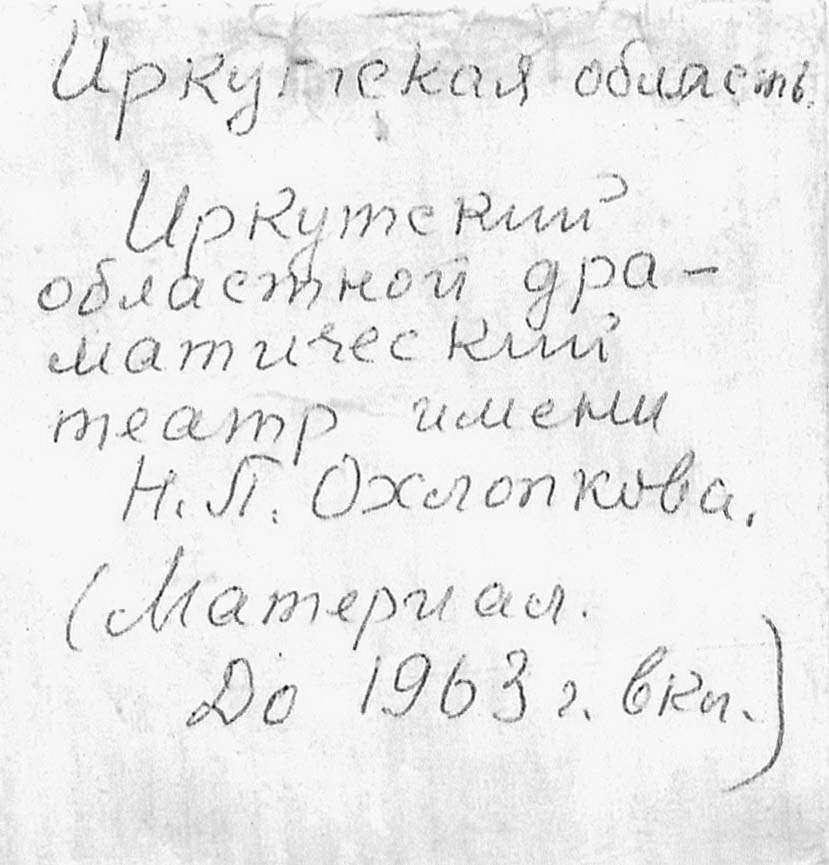 Иркутская область.
Иркутский
областной дра-
матический
театр имени
Н.П. Охлопкова.
(Материал.
До 1963 г. вкл.)